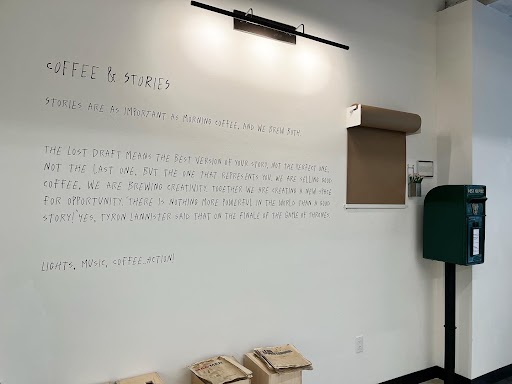 COFFEE & STORIES
STORIES ARE AS IMPORTANT AS MORNING COFFEE, AND WE BREW BOTH.
THE LOST DRAFT MEANS THE BEST VERSION OF YOUR STORY, NOT THE PERFECT ONE,
NOT THE LAST ONE, BUT THE ONE THAT REPRESENTS YOU. WE ARE SELLING GOOD
COFFEE, WE ARE BREWING CREATIVITY. TOGETHER WE ARE CREATING A NEW SPACE
FOR OPPORTUNITY. "THERE IS NOTHING MORE POWERFUL IN THE WORLD THAN A GOOD
STORY!" YES, TYRON LANNISTER SAID THAT ON THE FINALE OF THE GAME OF THRONES.
LIGHTS, MUSIC, COFFEE, ACTION!